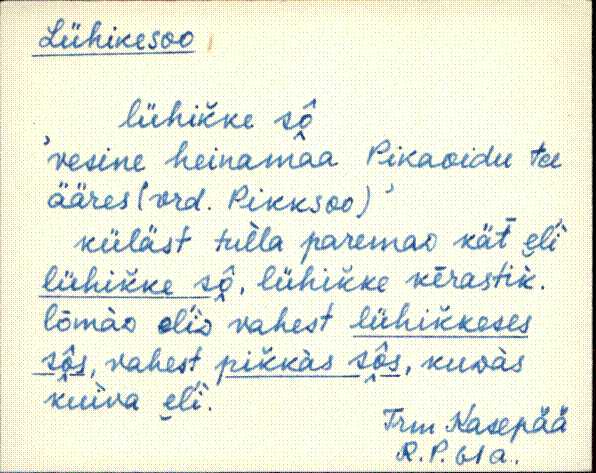 Lühikesoo
lühik̆ke sô̭
'vesine heinamaa Pikaoidu tee
ääres (vrd. Pikksoo)'
küläst tulla paremao kät e̬l'i
lühik̆ke sô̭, lühik̆ke kērastik.
lōmào ol'io vahest lühik̆keses
sô̭s, vahest pik̆kàs sô̭s, kuoàs
kuiva e̬l'i.
Trm Kasepää
R.P. 61 a.